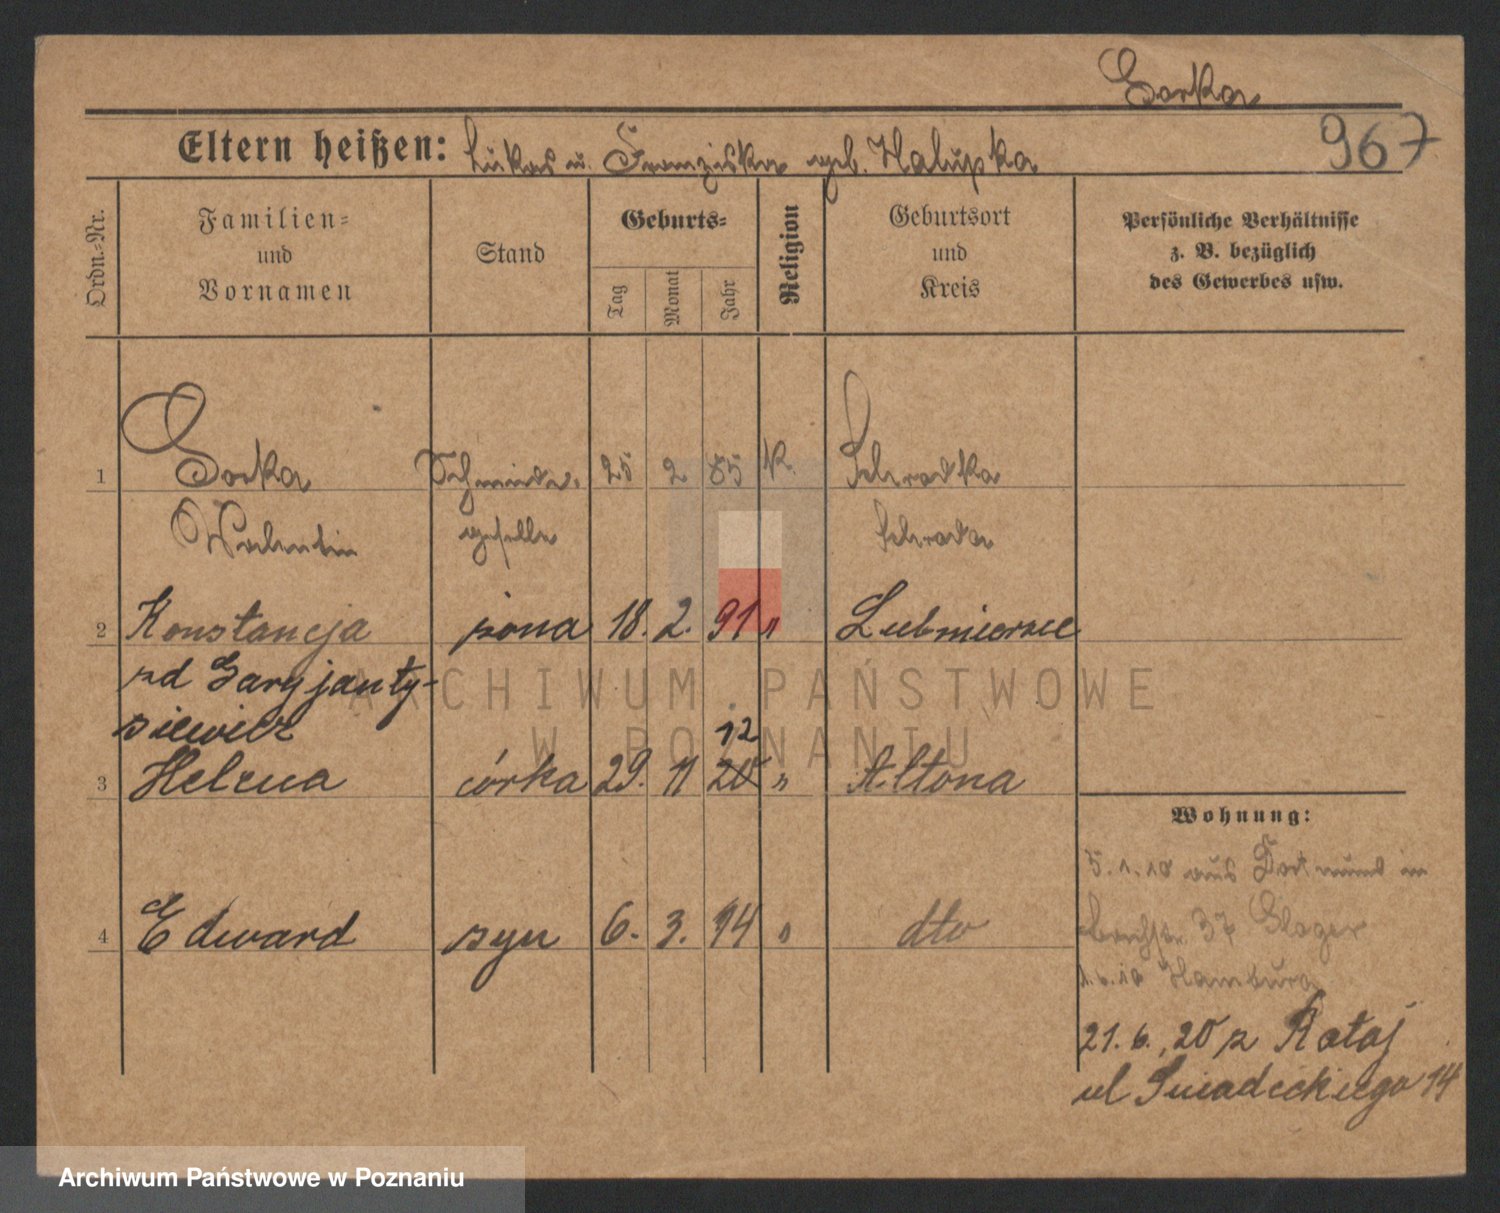 Sorka
967
Eltern heißen: Lukas u. Franziska geb. Halupka
Ordn.-Nr.
Familien- und Vornamen
Stand
Geburts-
Tag
Monat
Jahr
Religion
Geburtsort und Kreis
Persönliche Verhältnisse
z. B. bezüglich
des Gewerbes usw.
1 Sorka Schmiede- 25 2 85 K. Schrodka
Valentin geselle Schroda
2 Konstancja żona 18. 2. 91 "
zd
3 Helena córka 29. 11 20 12 " Altona
Wohnung:
5.1.10 aus Dortmund in
37
4 Edward syn 6. 3. 14 " dto
1.6.10 Hamburg
21.6.20 z Rataj
ul Śniadeckiego 14
ARCHIWUM PAŃSTWOWE
W POZNANIU
Archiwum Państwowe w Poznaniu